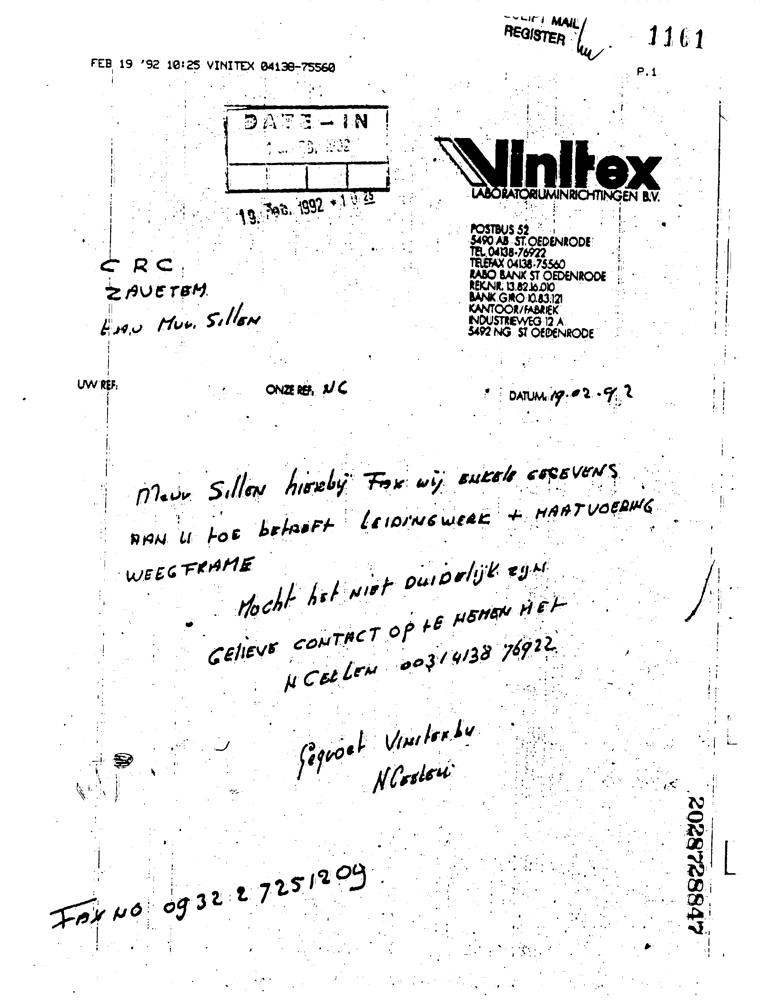 MAIL
REGISTER
1161
FEB 19 '92 10:25 VINITEX 04138-75560
P.1
DATE-IN
19. FEB. 1992 * 10 25
Vinitex
LABORATORIUMINRICHTINGEN B.V.
POSTBUS 52
5490 AB ST. OEDENRODE
TEL. 04138-76922
TELEFAX 04138-75560
RABO BANK ST OEDENRODE
REK.NR. 13.82.16.010
BANK GIRO 10.83.121
KANTOOR/FABRIEK
INDUSTRIEWEG 12 A
5492 NG ST OEDENRODE
C R C
ZAVETEM
t.a.v Mw. Sillen
UW REF:
ONZE REF: NC
DATUM: 19.02.92
Mevr Sillen hierbij Fax wij enkele GEGEVENS
AAN U toe betreft LEIDINGWERK + MAATVOERING
WEEGFRAME
Mocht het NIET DUIDELIJK ZIJN
GELIEVE CONTACT OP TE NEMEN MET
N CEELEN 0031 4138 76922
Gegroet Vinitex.bv
N Ceelen
FAX NO 0932 2 7251209
2028728847